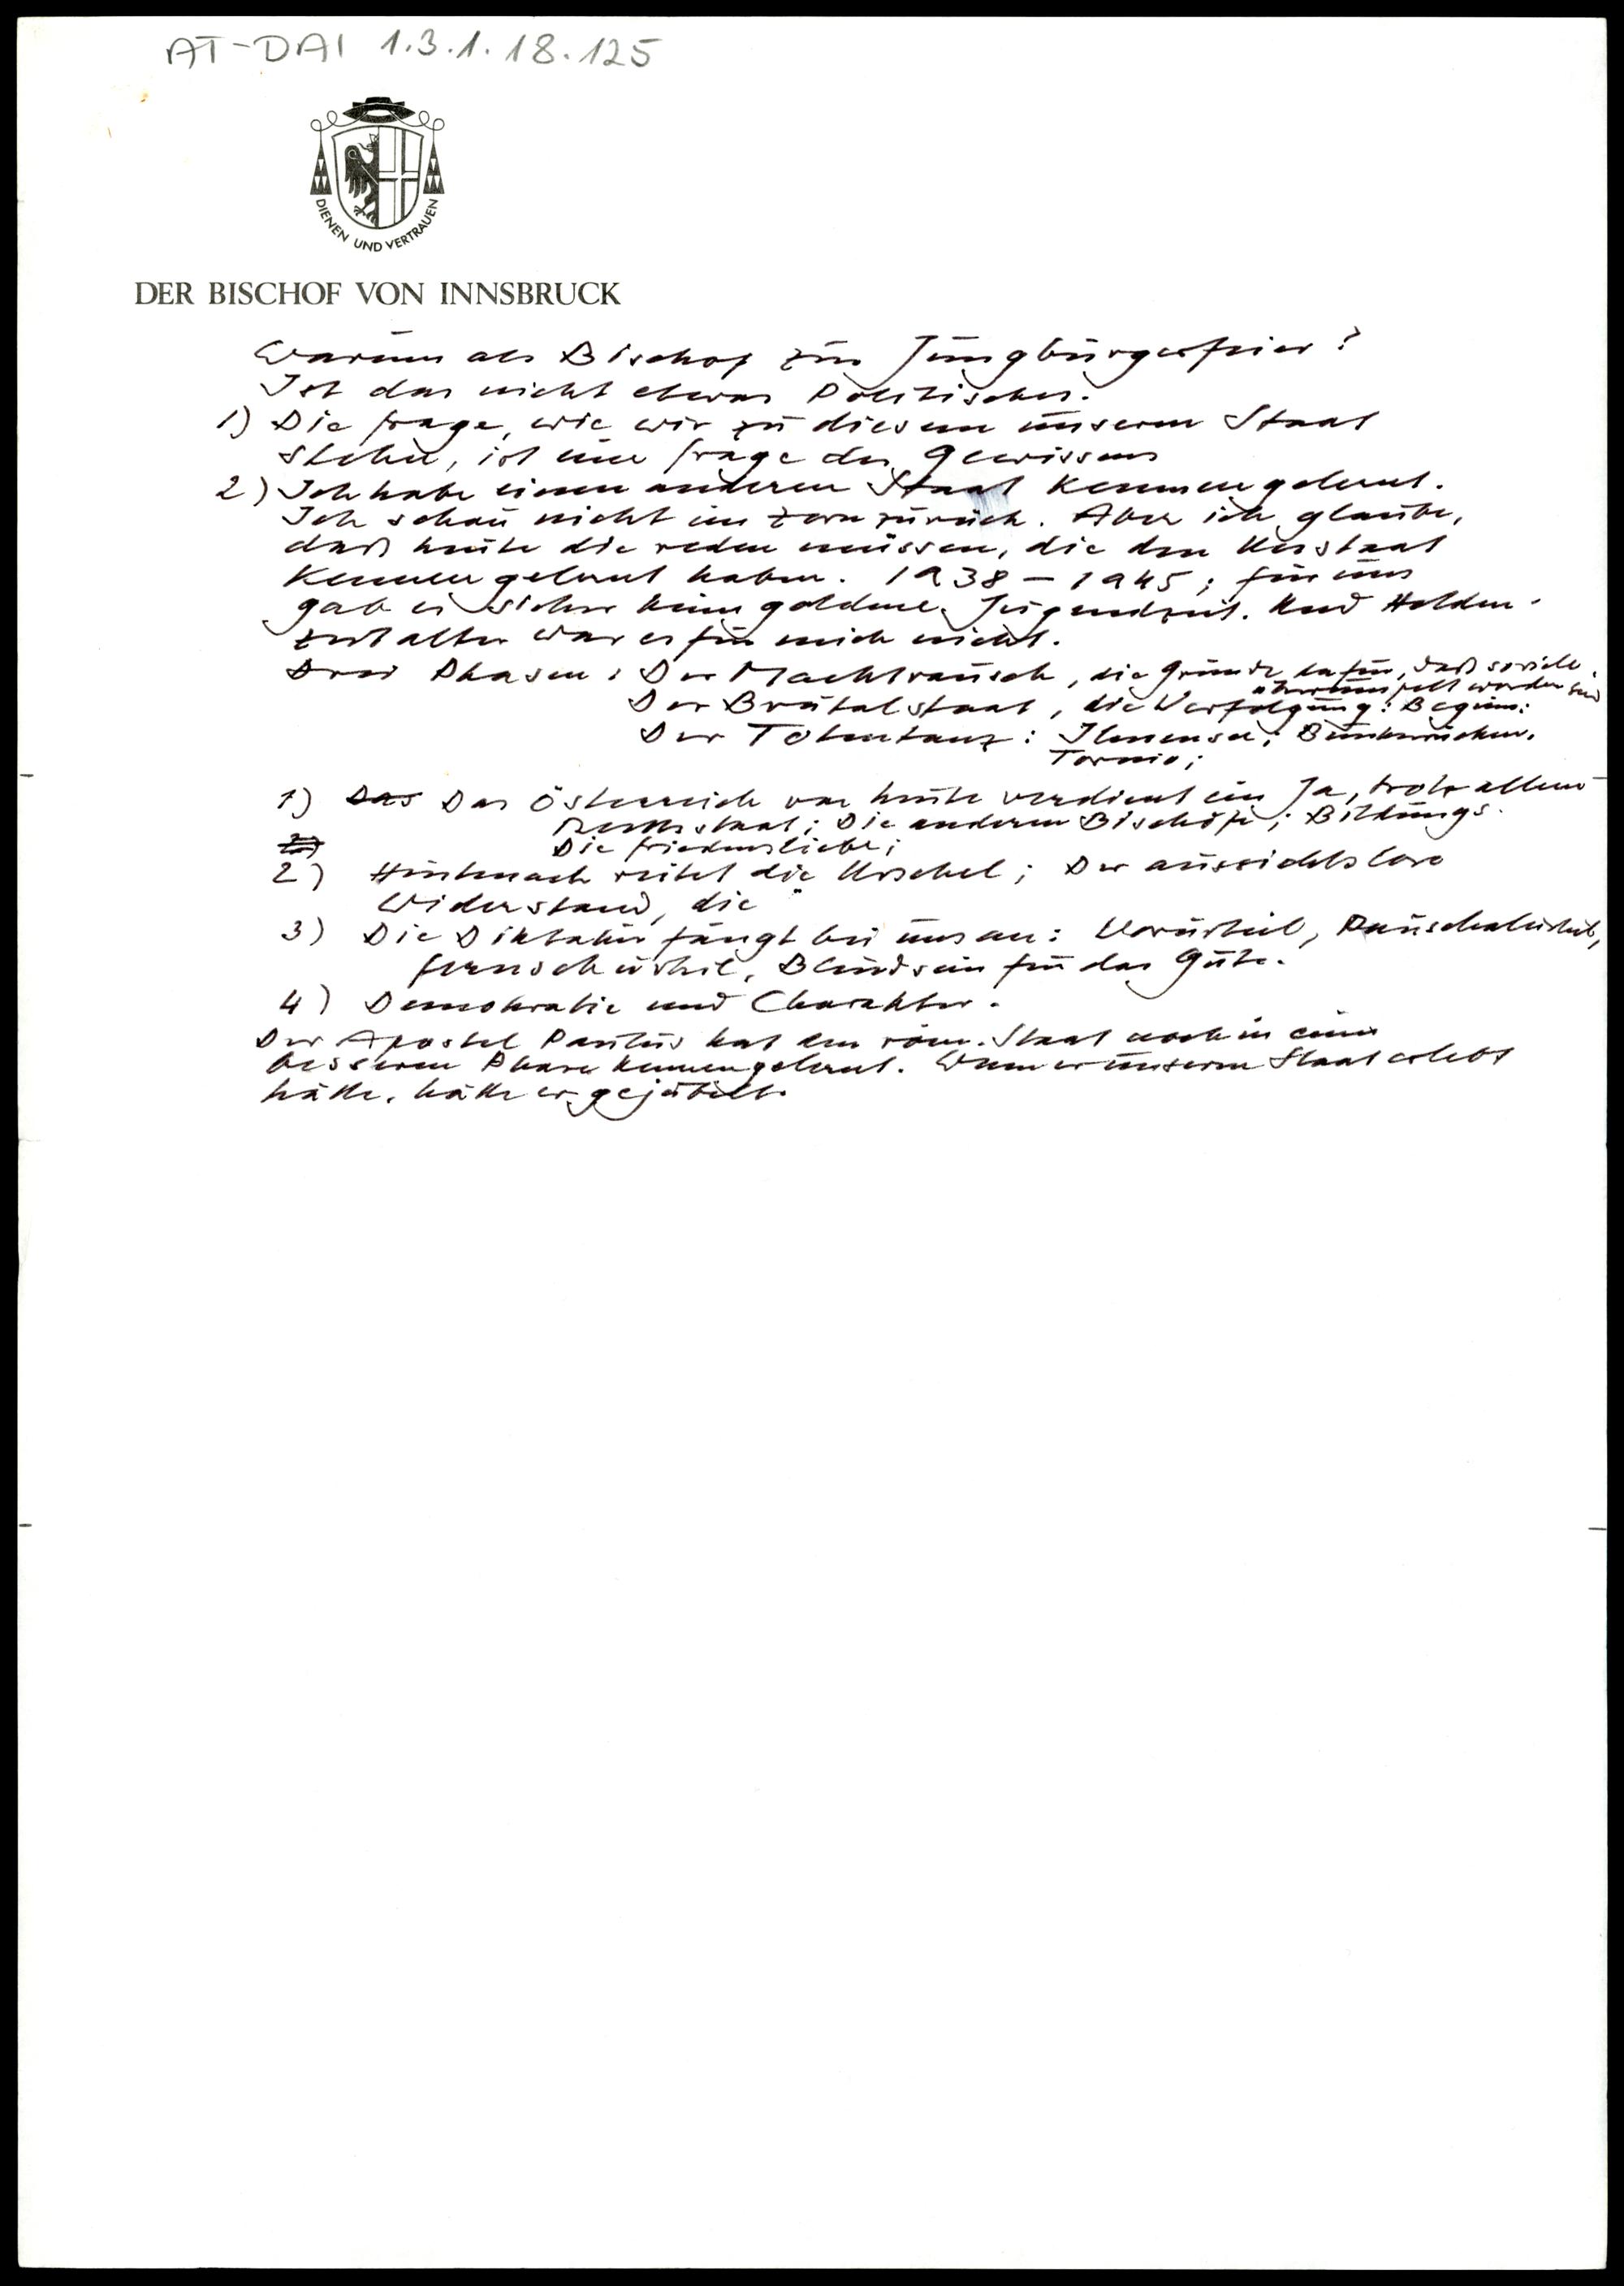 AT-DAI 1.3.1.18.125
DIENEN UND VERTRAUEN
DER BISCHOF VON INNSBRUCK
Warum als Bischof zur Jungbürgerfeier?
Ist das nicht etwas Politisches.
1) Die Frage, wie wir zu diesem unserem Staat
stehen, ist eine Frage des Gewissens
2) Ich habe einen anderen Staat kennen gelernt.
Ich schau nicht im Zorn zurück. Aber ich glaube,
daß heute die reden müssen, die den Unstaat
kennen gelernt haben. 1938 - 1945; für uns
gab es sicher keine goldene Jugendzeit. Und Helden-
zeitalter war es für mich nicht.
Drei Phasen: Der Machtrausch, die Gründe dafür, daß so viele
überrumpelt worden sind
Der Brutalstaat, die Verfolgung: Beginn:
Der Totentanz: Ilmensee; Bunkerrücken.
Tornio;
1) Das Das Österreich von heute verdient ein Ja, trotz allem
Rechtsstaat; Die anderen Bischöfe; Bildungs.
2)
Die Friedensliebe;
2) Hintenach reitet die Urschel; Der aussichtslose
Widerstand, die "
3) Die Diktatur fängt bei uns an: Vorurteil, Pauschalurteil,
Fernsehurteil, Blindsein für das Gute.
4) Demokratie und Charakter.
Der Apostel Paulus hat den röm. Staat noch in einer
besseren Phase kennengelernt. Wenn er unseren Staat erlebt
hätte, hätte er gejubelt.